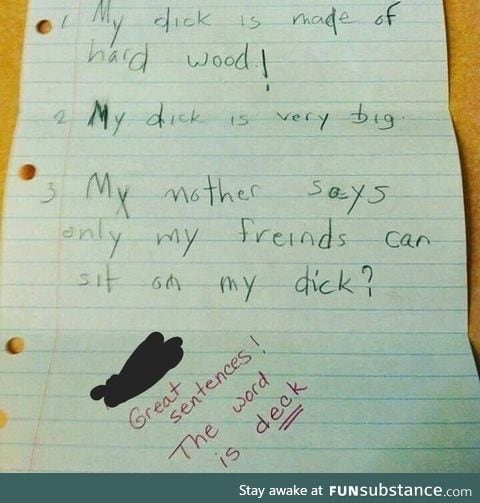 1 My dick is made of
hard wood!
2 My dick is very big.
3 My mother says
only my freinds can
sit on my dick?
Great
sentences!
The word
is deck
Stay awake at FUNsubstance.com